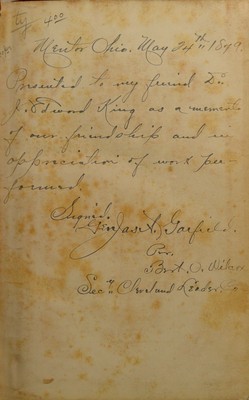 4.00
Mentor Ohio. May 24th 1879.
Presented to my friend Dr.
J. Edward King as a memento
of our friendship and in
appreciation of work per-
formed.
Signed.
Jas. A. Garfield.
Per.
Secy Cleveland